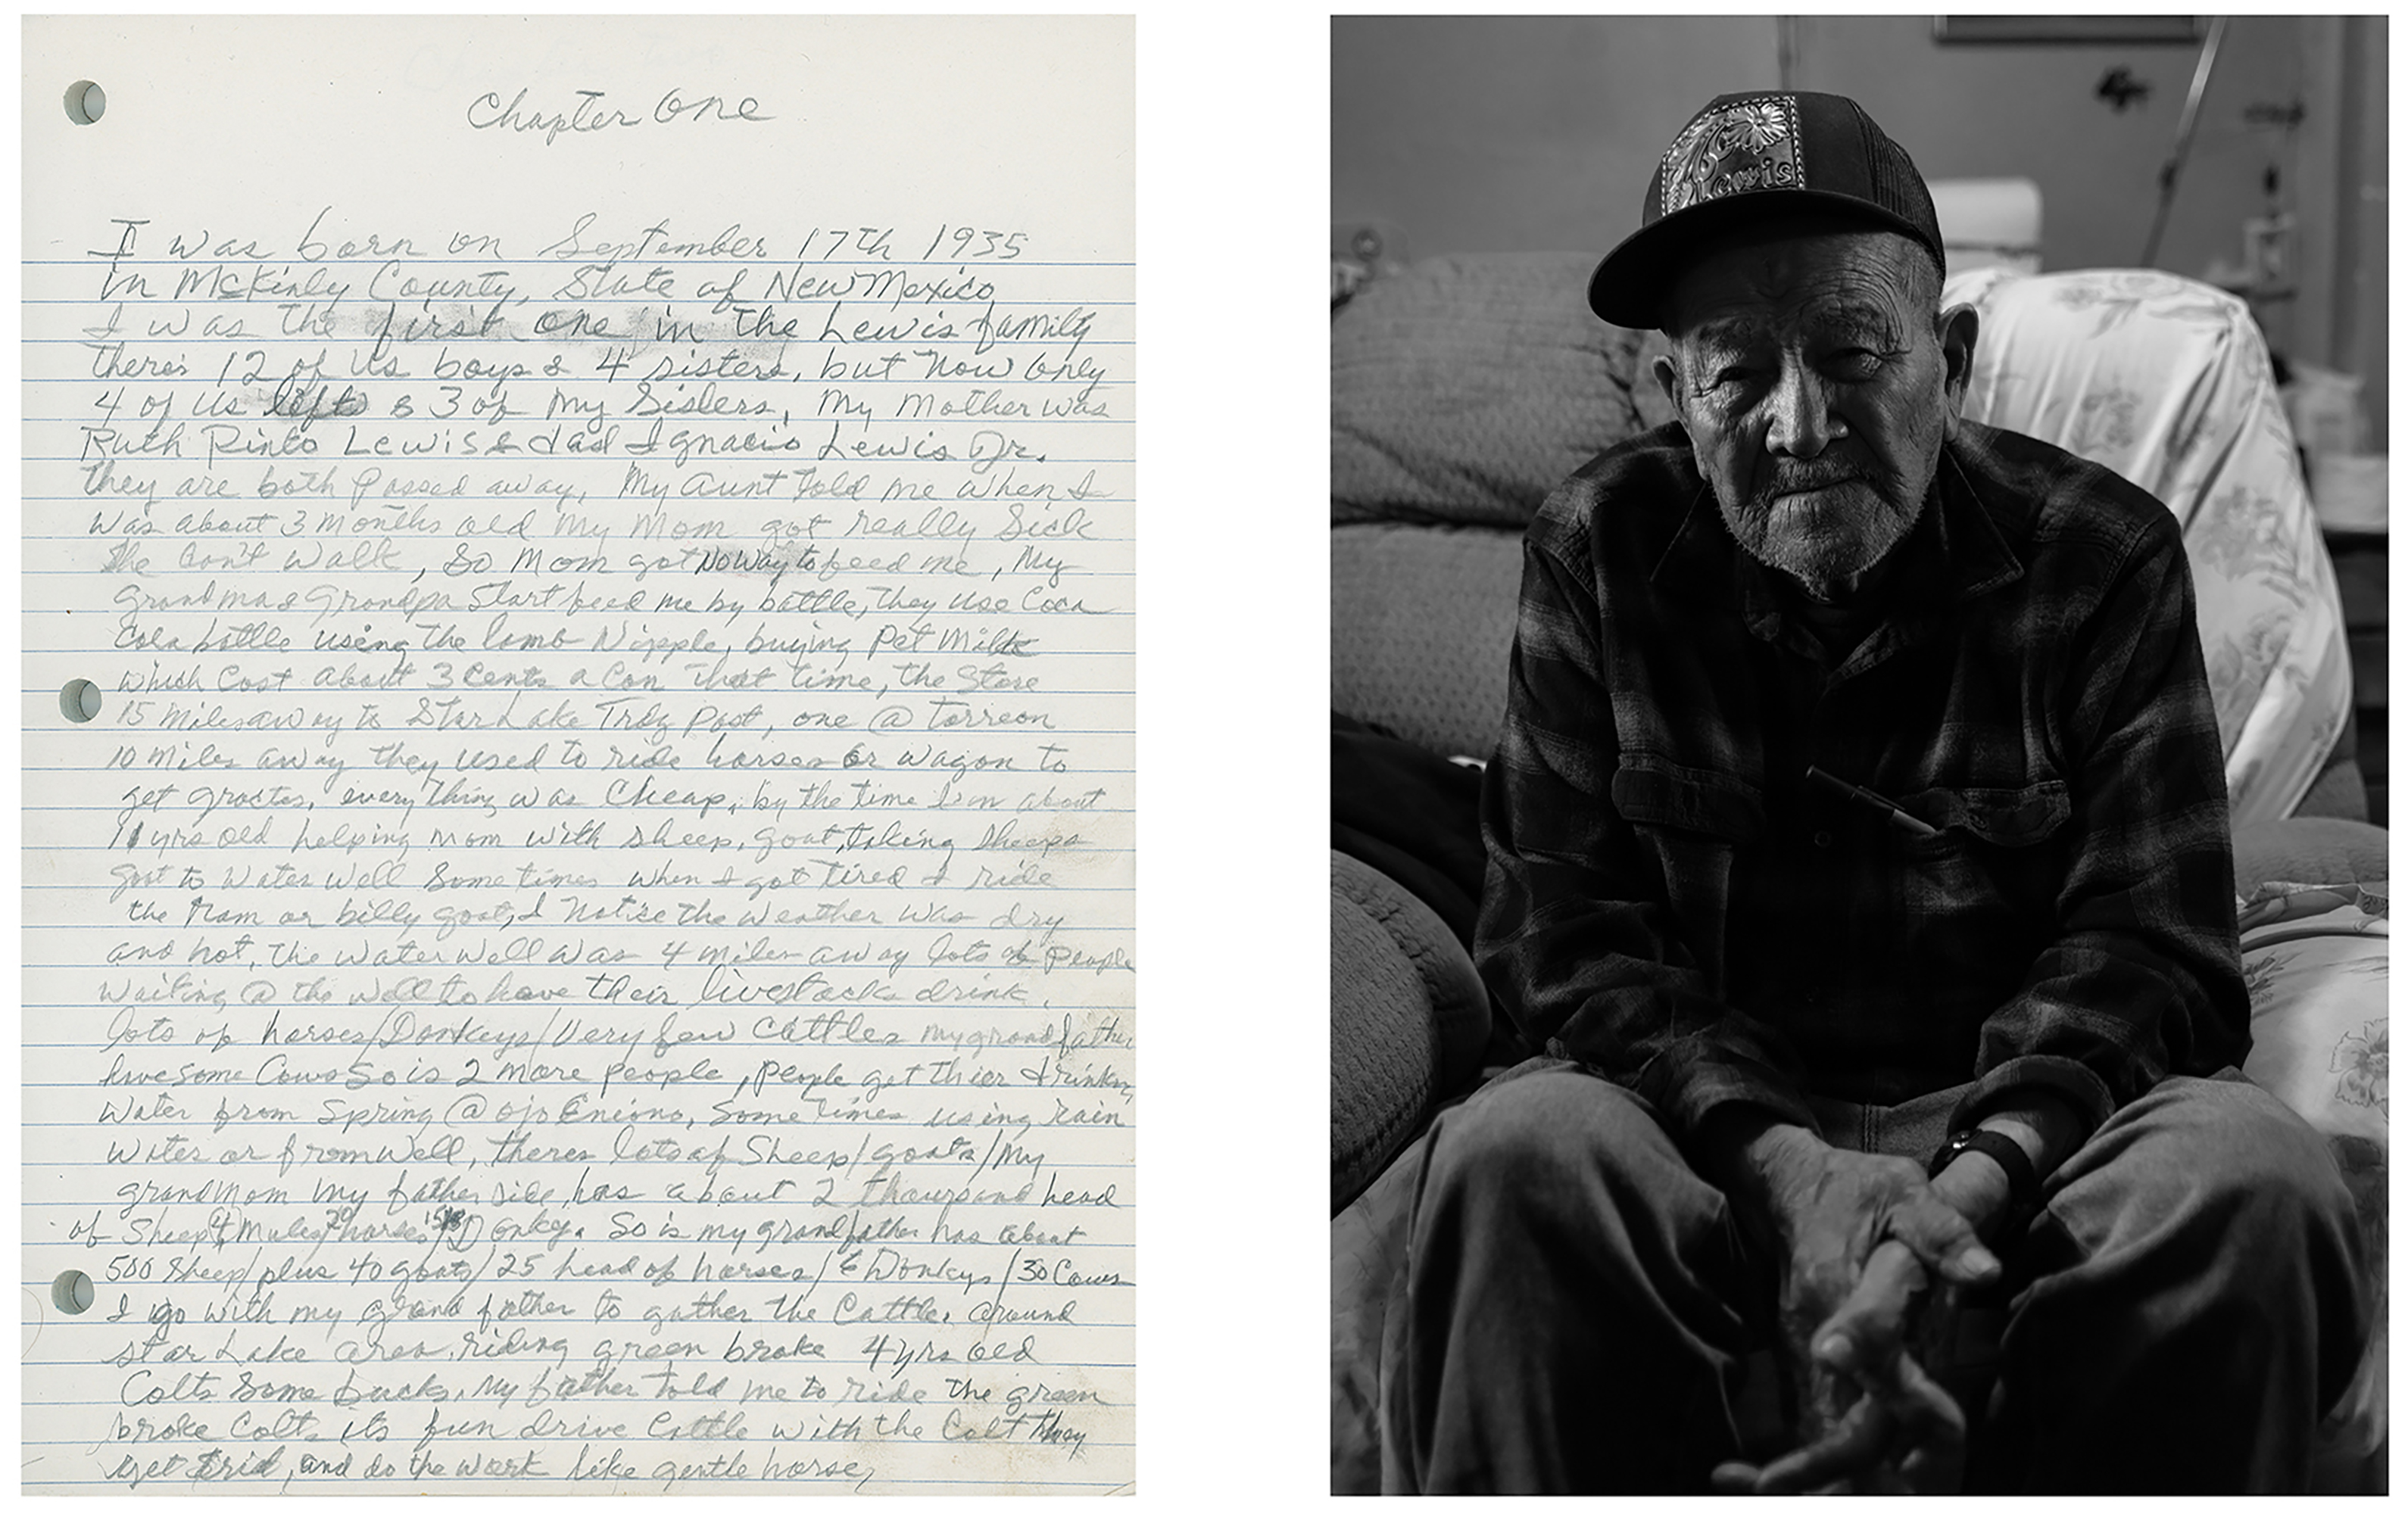 Chapter One
I was born on September 17th 1935
in McKinly County, State of New Mexico
I was the first one in the Lewis family
there's 12 of us boys & 4 sisters, but now only
4 of us left & 3 of my Sisters, My Mother was
Ruth Pinto Lewis & dad Ignacio Lewis Jr.
They are both passed away, My Aunt told me when I
was about 3 months old my Mom got really Sick
She Can't walk, So Mom got No Way to feed me, My
Grandma & Grandpa Start feed me by bottle, they use Coca
Cola bottle using the lamb Nipple, buying Pet Milk
which Cost about 3 Cents a Can that time, the Store
15 miles away to Star Lake Trdg Post, one @ torreon
10 miles away they used to ride horses or wagon to
get , everything was Cheap, by the time I'm about
11 yrs old helping mom with sheep, goat, taking sheeps
goat to water well Sometimes when I got tired I ride
the Ram or billy goat, I Notice the weather was dry
and hot, the water well was 4 miles away lots of People
waiting @ the well to have their livestocks drink,
lots of horses/Donkeys/Very few Cattles my grandfather
have some Cows So is 2 more people, People get thier drinking
water from Spring @ ojo Encino, Sometimes using rain
water or from well, theres lots of Sheep/goats/My
grandMom my father side, has about 2 thousand head
of Sheep/4 Mules/20 horses/15 Donkey. So is my grandfather has about
500 Sheep/plus 40 goats/25 head of horses/6 Donkeys/30 Cows
I go with my grand father to gather the Cattle, around
star Lake area, riding green broke 4 yrs old
Colts Some bucks, My father told me to ride the green
broke Colt, its fun drive Cattle with the Colt they
get , and do the work like gentle horse,
Lewis